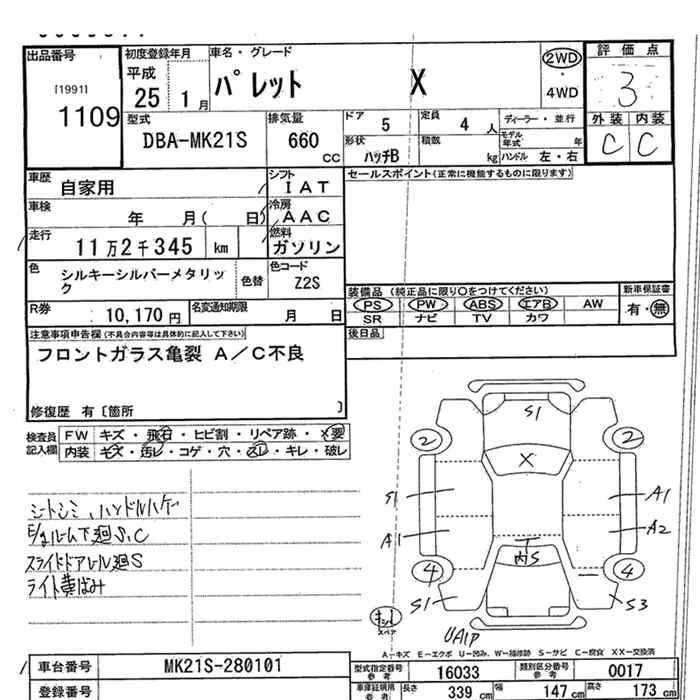 出品番号
[1991]
1109
初度登録年月
平成
25 1月
車名・グレード
パレット X
2WD
・
4WD
評価点
3
外装 内装
C C
型式
DBA-MK21S
排気量
660 CC
ドア 5
定員 4 人
形状 ハッチB
積数 kg
ディーラー・並行
モデル年式 年
ハンドル 左・右
車歴
自家用
シフト
IAT
車検
年 月( 日)
冷房
AAC
走行
11万2千345 km
燃料
ガソリン
色
シルキーシルバーメタリック
色替
色コード
Z2S
R券
10,170円
名変通知期限
月 日
セールスポイント(正常に機能するものに限ります)
装備品 (純正品に限り○をつけてください)
PS PW ABS エアB AW
SR ナビ TV カワ
新車保証書
有・無
後日品
注意事項申告欄(不具合内容等は具体的に記入して下さい)
フロントガラス亀裂 A/C不良
修復歴 有〔箇所 〕
検査員記入欄
FW キズ・飛石・ヒビ割・リペア跡・X要
内装 キズ・汚レ・コゲ・穴・スレ・キレ・破レ
シートシミ、ハンドルハゲ
E/gルーム下廻S.C
スライドドアレール廻S
ライト黄ばみ
S1
2 2
X
S1 A1
A1 A2
内S
4 4
S1 S3
スペア
UA1P
A-キズ E-エクボ U-凹み、W-補修跡 S-サビ C-腐食 XX-交換済
車台番号
MK21S-280101
登録番号
型式指定番号 参考
16033
類別区分番号 参考
0017
車庫証明用 参考
長さ 339 cm
幅 147 cm
高さ 173 cm